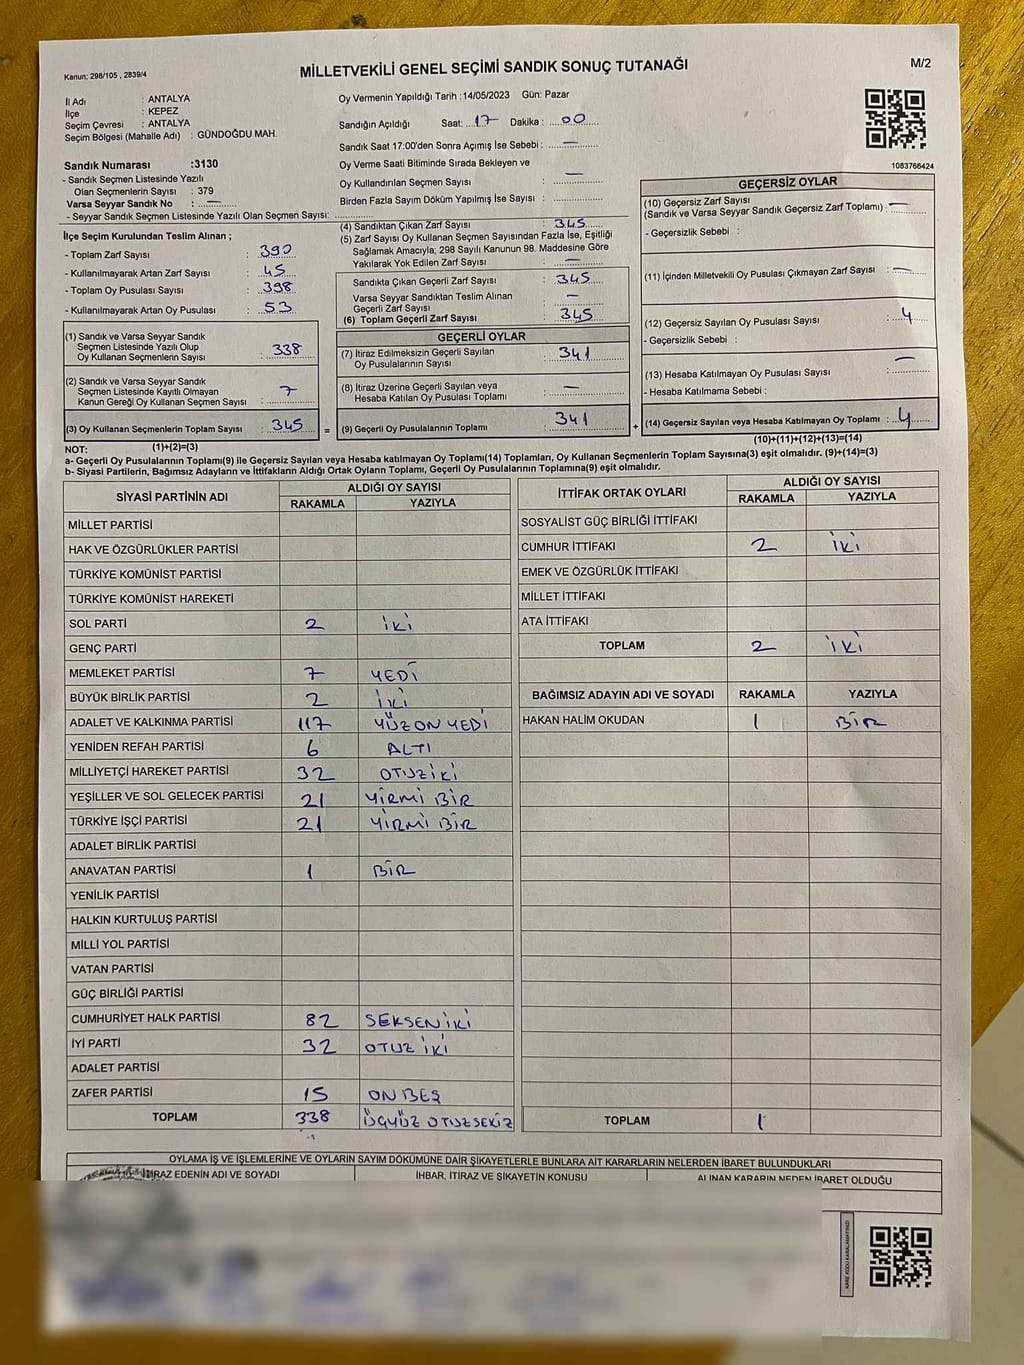 Kanun; 298/105 , 2839/4
MİLLETVEKİLİ GENEL SEÇİMİ SANDIK SONUÇ TUTANAĞI
M/2
İl Adı : ANTALYA
İlçe : KEPEZ
Seçim Çevresi : ANTALYA
Seçim Bölgesi (Mahalle Adı) : GÜNDOĞDU MAH.
Sandık Numarası :3130
- Sandık Seçmen Listesinde Yazılı
Olan Seçmenlerin Sayısı : 379
Varsa Seyyar Sandık No : —
- Seyyar Sandık Seçmen Listesinde Yazılı Olan Seçmen Sayısı:
Oy Vermenin Yapıldığı Tarih :14/05/2023 Gün: Pazar
Sandığın Açıldığı Saat: 17 Dakika : 00
Sandık Saat 17:00'den Sonra Açımış İse Sebebi : —
Oy Verme Saati Bitiminde Sırada Bekleyen ve
Oy Kullandırılan Seçmen Sayısı : —
Birden Fazla Sayım Döküm Yapılmış İse Sayısı :
1083766424
İlçe Seçim Kurulundan Teslim Alınan ;
- Toplam Zarf Sayısı : 390
- Kullanılmayarak Artan Zarf Sayısı : 45
- Toplam Oy Pusulası Sayısı : 398
- Kullanılmayarak Artan Oy Pusulası : 53
(1) Sandık ve Varsa Seyyar Sandık
Seçmen Listesinde Yazılı Olup
Oy Kullanan Seçmenlerin Sayısı : 338
(2) Sandık ve Varsa Seyyar Sandık
Seçmen Listesinde Kayıtlı Olmayan
Kanun Gereği Oy Kullanan Seçmen Sayısı : 7
(3) Oy Kullanan Seçmenlerin Toplam Sayısı : 345
(4) Sandıktan Çıkan Zarf Sayısı : 345
(5) Zarf Sayısı Oy Kullanan Seçmen Sayısından Fazla İse, Eşitliği
Sağlamak Amacıyla; 298 Sayılı Kanunun 98. Maddesine Göre
Yakılarak Yok Edilen Zarf Sayısı : —
Sandıkta Çıkan Geçerli Zarf Sayısı : 345
Varsa Seyyar Sandıktan Teslim Alınan
Geçerli Zarf Sayısı : —
(6) Toplam Geçerli Zarf Sayısı : 345
GEÇERLİ OYLAR
(7) İtiraz Edilmeksizin Geçerli Sayılan
Oy Pusulalarının Sayısı : 341
(8) İtiraz Üzerine Geçerli Sayılan veya
Hesaba Katılan Oy Pusulası Toplamı : —
= (9) Geçerli Oy Pusulalarının Toplamı : 341
GEÇERSİZ OYLAR
(10) Geçersiz Zarf Sayısı
(Sandık ve Varsa Seyyar Sandık Geçersiz Zarf Toplamı) : —
- Geçersizlik Sebebi :
(11) İçinden Milletvekili Oy Pusulası Çıkmayan Zarf Sayısı : —
(12) Geçersiz Sayılan Oy Pusulası Sayısı : 4
- Geçersizlik Sebebi :
(13) Hesaba Katılmayan Oy Pusulası Sayısı : —
- Hesaba Katılmama Sebebi :
+ (14) Geçersiz Sayılan veya Hesaba Katılmayan Oy Toplamı : 4
NOT: (1)+(2)=(3)
(10)+(11)+(12)+(13)=(14)
a- Geçerli Oy Pusulalarının Toplamı(9) ile Geçersiz Sayılan veya Hesaba katılmayan Oy Toplamı(14) Toplamları, Oy Kullanan Seçmenlerin Toplam Sayısına(3) eşit olmalıdır. (9)+(14)=(3)
b- Siyasi Partilerin, Bağımsız Adayların ve İttifakların Aldığı Ortak Oyların Toplamı, Geçerli Oy Pusulalarının Toplamına(9) eşit olmalıdır.
SİYASİ PARTİNİN ADI
ALDIĞI OY SAYISI
RAKAMLA YAZIYLA
MİLLET PARTİSİ
HAK VE ÖZGÜRLÜKLER PARTİSİ
TÜRKİYE KOMÜNİST PARTİSİ
TÜRKİYE KOMÜNİST HAREKETİ
SOL PARTİ 2 İKİ
GENÇ PARTİ
MEMLEKET PARTİSİ 7 YEDİ
BÜYÜK BİRLİK PARTİSİ 2 İKİ
ADALET VE KALKINMA PARTİSİ 117 YÜZ ON YEDİ
YENİDEN REFAH PARTİSİ 6 ALTI
MİLLİYETÇİ HAREKET PARTİSİ 32 OTUZ İKİ
YEŞİLLER VE SOL GELECEK PARTİSİ 21 YİRMİ BİR
TÜRKİYE İŞÇİ PARTİSİ 21 YİRMİ BİR
ADALET BİRLİK PARTİSİ
ANAVATAN PARTİSİ 1 BİR
YENİLİK PARTİSİ
HALKIN KURTULUŞ PARTİSİ
MİLLİ YOL PARTİSİ
VATAN PARTİSİ
GÜÇ BİRLİĞİ PARTİSİ
CUMHURİYET HALK PARTİSİ 82 SEKSEN İKİ
İYİ PARTİ 32 OTUZ İKİ
ADALET PARTİSİ
ZAFER PARTİSİ 15 ON BEŞ
TOPLAM 338 ÜÇYÜZ OTUZSEKİZ
İTTİFAK ORTAK OYLARI
ALDIĞI OY SAYISI
RAKAMLA YAZIYLA
SOSYALİST GÜÇ BİRLİĞİ İTTİFAKI
CUMHUR İTTİFAKI 2 İKİ
EMEK VE ÖZGÜRLÜK İTTİFAKI
MİLLET İTTİFAKI
ATA İTTİFAKI
TOPLAM 2 İKİ
BAĞIMSIZ ADAYIN ADI VE SOYADI RAKAMLA YAZIYLA
HAKAN HALİM OKUDAN 1 BİR
TOPLAM 1
OYLAMA İŞ VE İŞLEMLERİNE VE OYLARIN SAYIM DÖKÜMÜNE DAİR ŞİKAYETLERLE BUNLARA AİT KARARLARIN NELERDEN İBARET BULUNDUKLARI
İTİRAZ EDENİN ADI VE SOYADI
İHBAR, İTİRAZ VE ŞİKAYETİN KONUSU
ALINAN KARARIN NEDEN İBARET OLDUĞU
KARE KODU KARALAMAYINIZ!